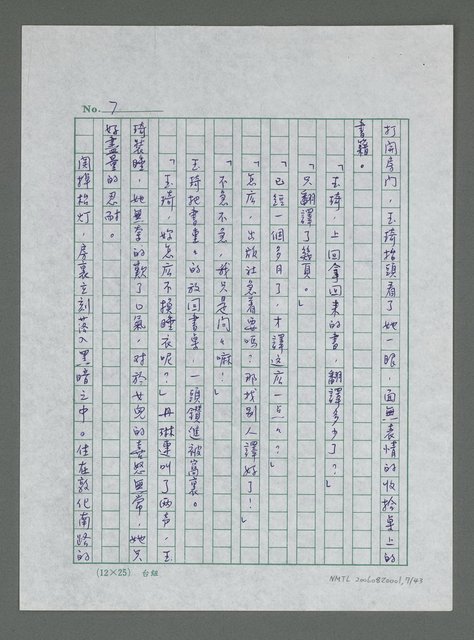 No. 7
打開房門，玉琦抬頭看了她一眼，面無表情的收拾桌上的
書籍。
「玉琦，上回拿回來的書，翻譯多少了？」
「只翻譯了幾頁。」
「已經一個多月了，才譯這麼一点々？」
「怎麼，出版社急着要嗎？那找別人譯好了！」
「不急不急，我只是問々嘛！」
玉琦把書重々的放回書桌，一頭鑽進被窩裏。
「玉琦，妳怎麼不換睡衣呢？」丹琳東叫了兩声，玉
琦裝睡，她無奈的歎了口氣，对於女兒的喜怒無常，她只
好盡量的忍耐。
関掉枱灯，房裏立刻落入黑暗之中。住在敦化南路的
(12×25) 台紐
NMTL 20060820001, 7/43